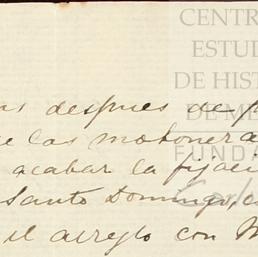 CENTR
ESTUD
DE HIST
DE M
FUNDA
as despues de
e las mohoneras
acabar la fijaci
Santo Domingo, c
el arreglo con M